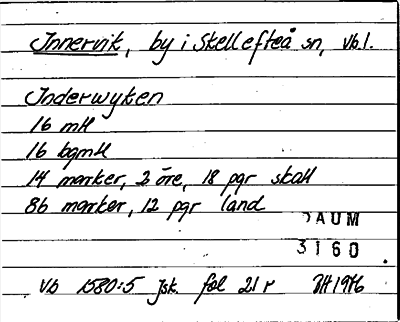 Innervik, by i Skellefteå sn, Vb l.
Inderwyken
16 mtl
16 bgmtl
14 marker, 2 öre, 18 pgr skatt
86 marker, 12 pgr land
DAUM
3160
Vb 1580:5 Jsk. fol 21 r